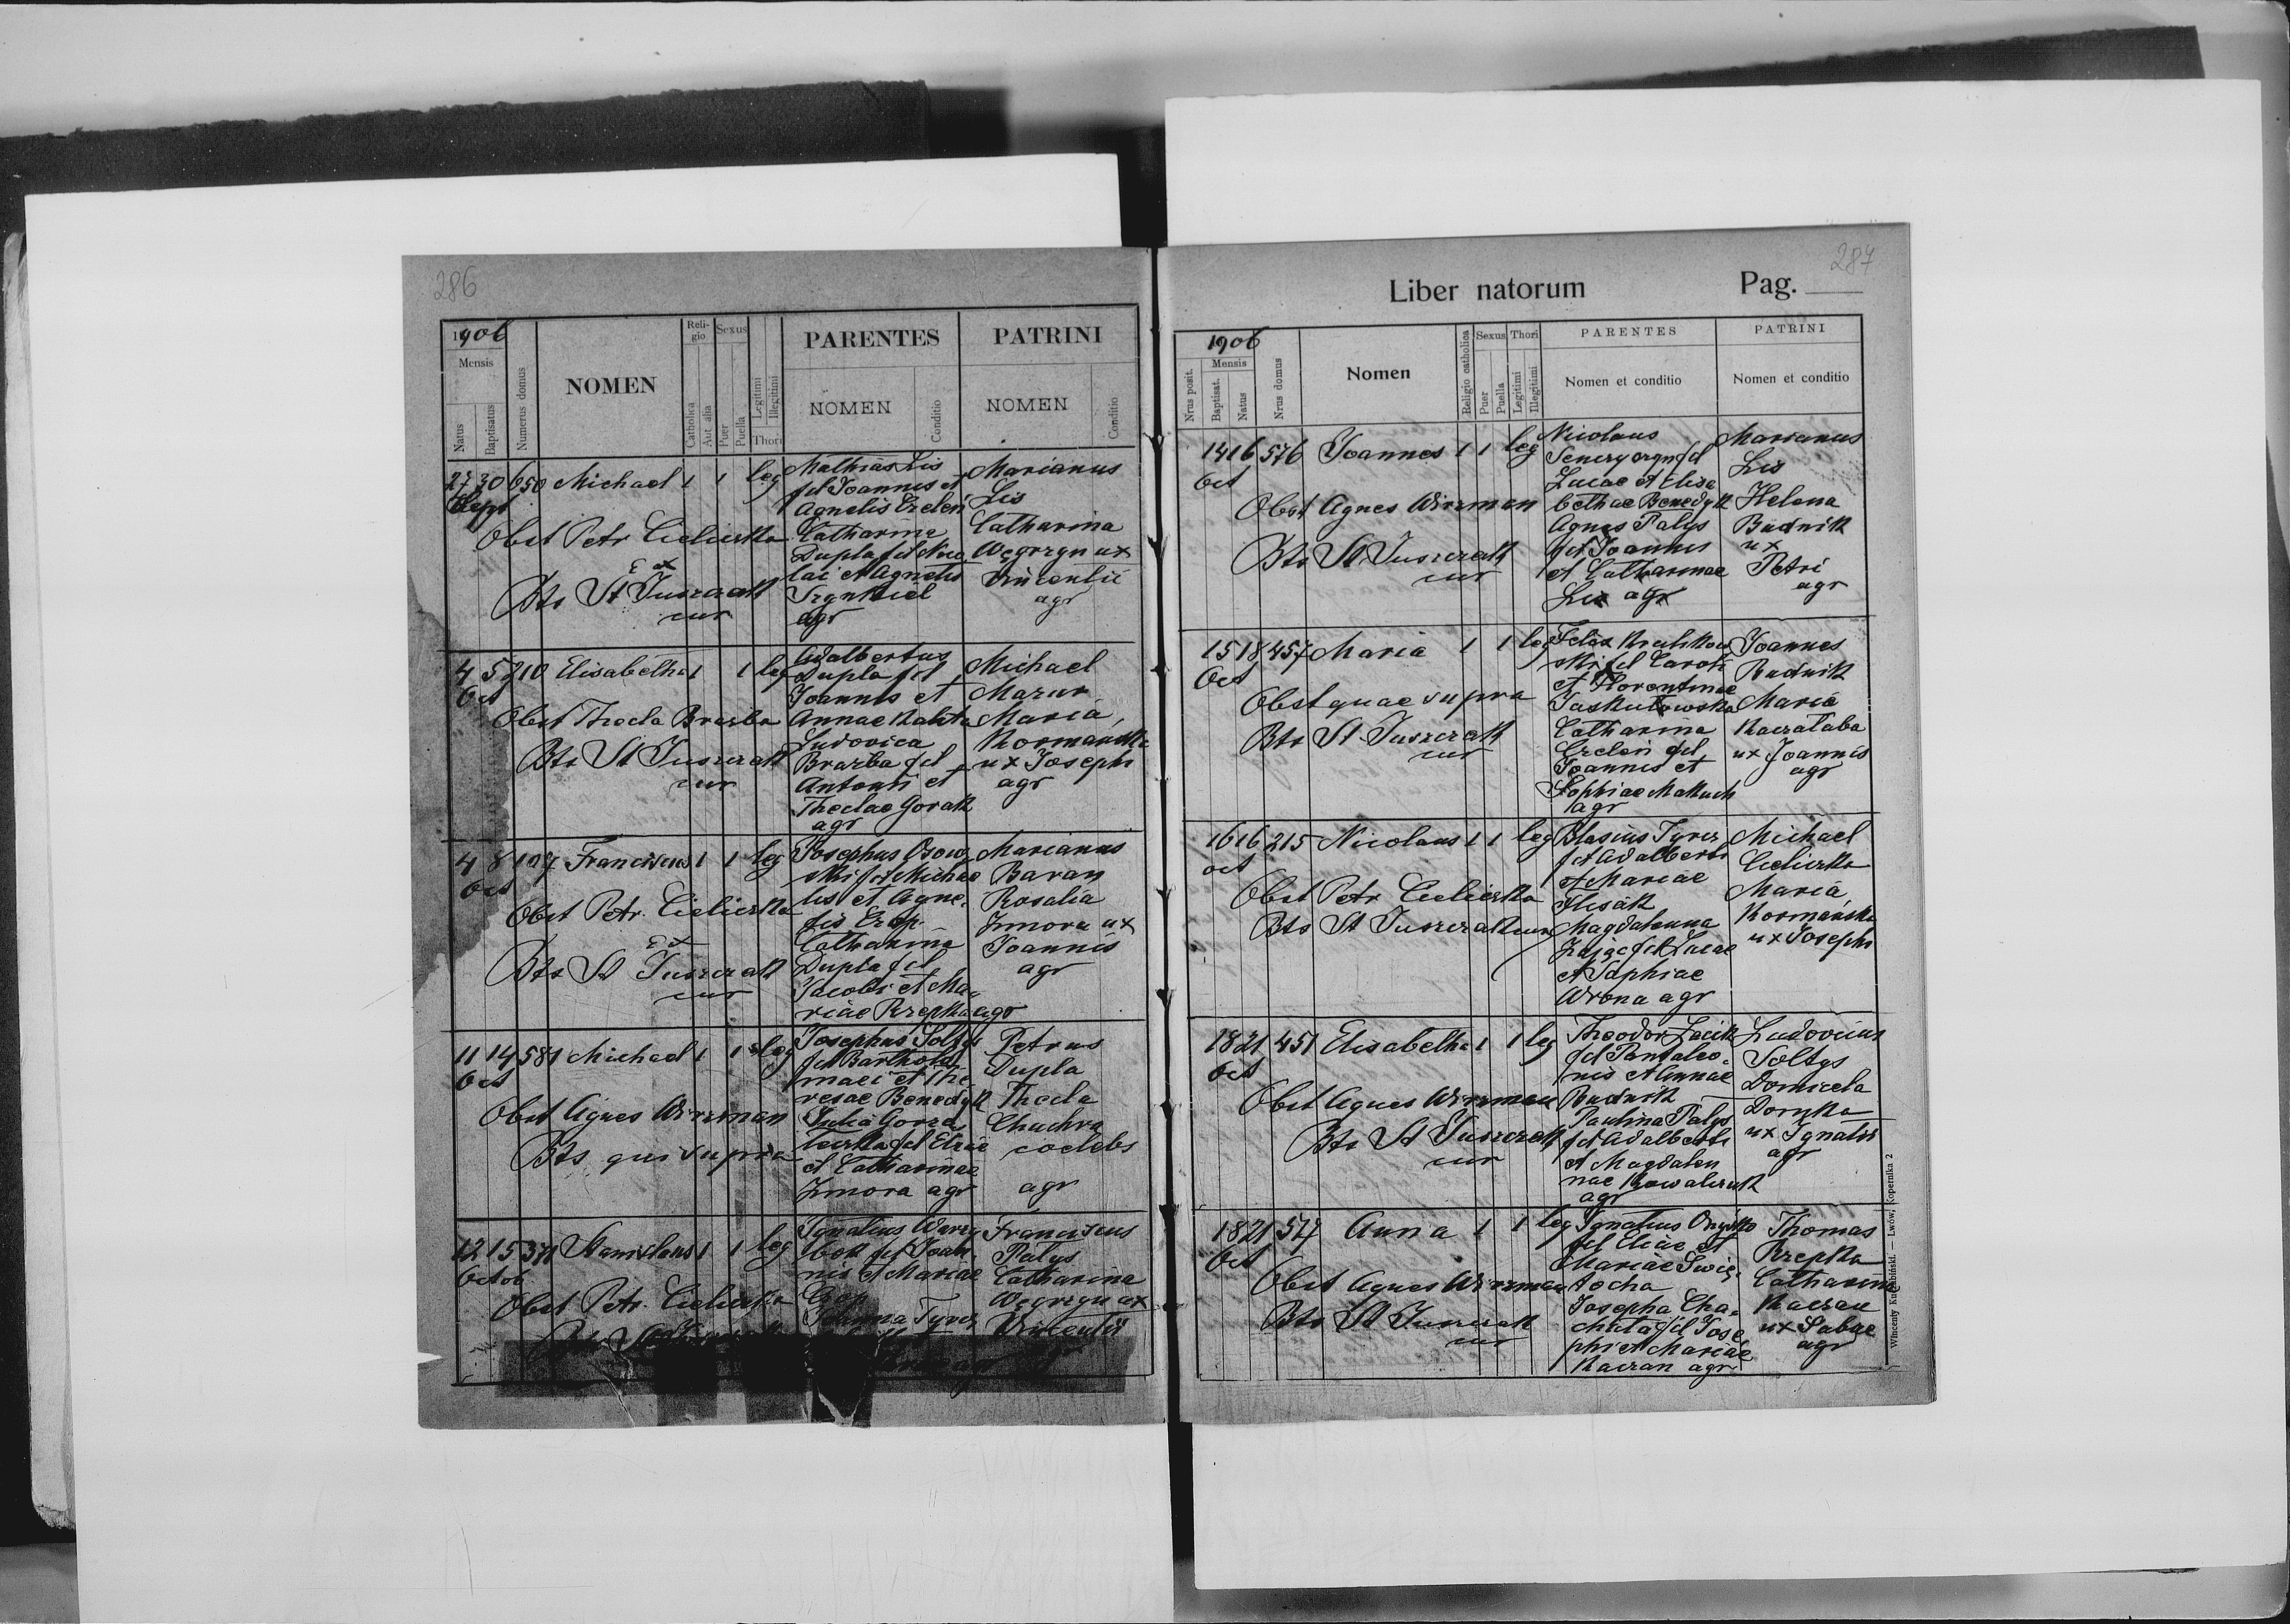 286
1906
Mensis
Natus
Baptisatus
Numerus domus
NOMEN
Reli-
gio
Catholica
Aut alia
Sexus
Puer
Puella
Legitimi
Illegitimi
Thori
PARENTES
NOMEN
Conditio
PATRINI
NOMEN
Conditio
27 30 650 Michael 1 1 leg
Sept
Obst Petr Cieliczka
Bts St Juszczak
cur
Mathias Lis
fil Joannis et
Agnetis
Catharina
Dupla fil Nico
lai et Agnetis
agr
Marianus
Lis
Catharina
Węgrzyn ux
Vincentii
agr
4 5 210 Elisabetha 1 1 leg
Oct
Obst Thecla Brazba
Bts St Juszczak
cur
Adalbertus
Dupla fil
Joannis et
Annae Kaleta
Ludovica
Brazba fil
Antonii et
Theclae Gorak
agr
Michael
Mazur
Maria
ux Josephi
agr
4 8 Franciscus 1 1 leg
Oct
Obst Petr. Cieliczka
Bts St Juszczak
cur
Josephus Osow
ski fil Michae
lis et Agne
tis Czop
Catharina
Dupla fil
Jacobi et Ma
riae Rzepka agr
Marianus
Baran
Rosalia
Zmora ux
Joannis
agr
11 14 581 Michael 1 1 leg
Oct
Obst Agnes Wirzman
Bts qui supra
Josephus Soltys
fil Bartholo
maei et The
resae Benedyk
Julia
et Catharinae
Zmora agr
Petrus
Dupla
Thecla
Chuchra
coelebs
agr
12 15 Stanislaus 1 1 leg
Octob
Obst Petr. Cieliczka
Ignatius Warzy
bok fil Joan
nis et Mariae
Czop
Joanna Tyrcz
agr
Franciscus
Palys
Catharina
Węgrzyn ux
Vincentii
287
Liber natorum Pag.
1906
Nrus posit.
Mensis
Baptisat.
Natus
Nrus domus
Nomen
Religio catholica
Sexus
Puer
Puella
Thori
Legitimi
Illegitimi
PARENTES
Nomen et conditio
PATRINI
Nomen et conditio
14 16 576 Joannes 1 1 leg
Oct
Obst Agnes Wirzman
Bts St Juszczak
cur
Nicolaus
Lucae et Elisa
bethae Benedyk
Agnes Palys
fil Joannis
et Catharinae
Lis agr
Marianus
Lis
Helena
Budnik
ux
Petri
agr
15 18 457 Maria 1 1 leg
Oct
Obst quae supra
Bts St Juszczak
cur
Felix
ski fil Caroli
et Florentinae
Catharina
fil
Joannis et
Sophiae Makuch
agr
Joannes
Budnik
Maria
Kacrataba
ux Joannis
agr
16 16 215 Nicolaus 1 1 leg
oct
Obst Petr Cieliczka
Bts St Juszczak cur
Blasius Tyrcz
fil Adalberti
et Mariae
Flisak
Magdalena
Zając fil Lucae
et Sophiae
Wrona agr
Michael
Cieliczka
Maria
Kormańska
ux Josephi
18 21 451 Elisabetha 1 1 leg
Oct
Obst Agnes Wirzman
Bts St Juszczak
cur
Theodor Zacik
fil Pantaleo
nis et Annae
Budnik
Paulina Palys
fil Adalberti
et Magdalen
nae Kowalczuk
agr
Ludovicus
Soltys
Domicela
Doryka
ux Ignatii
agr
18 21 Anna 1 1 leg
Oct
Obst Agnes Wirzman
Bts St Juszczak
cur
Ignatius Onyśko
fil Eliae et
Mariae Swię
tocha
Josepha Cha
chuta fil Jose
phi et Mariae
Kaczan agr
Thomas
Rzepka
Catharina
Kaczan
ux Sabae
agr